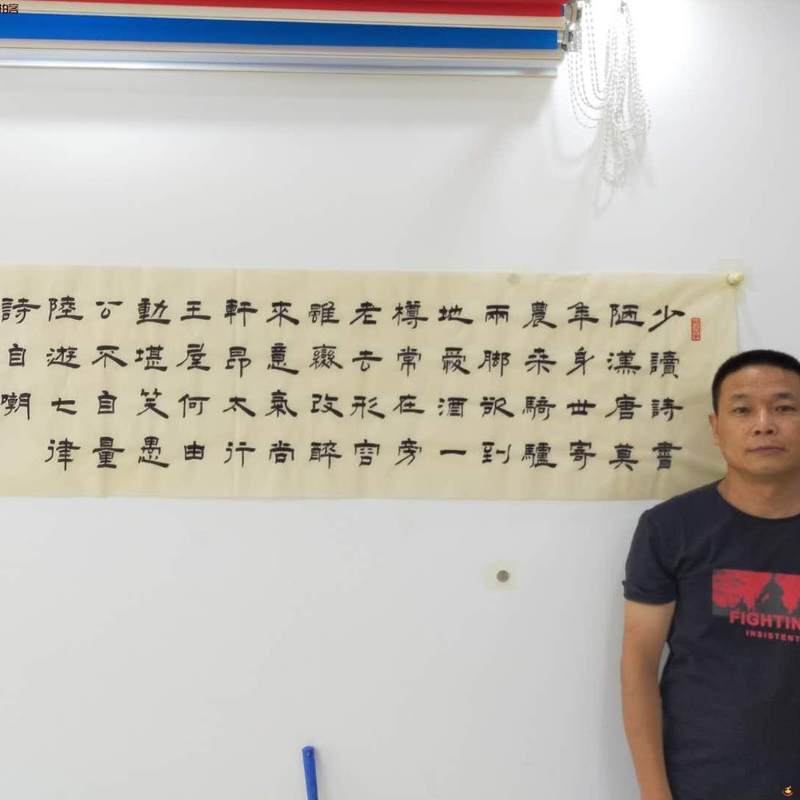 拍客
少讀詩書
陋漢唐莫
年身世寄
農桒騎驢
兩脚欲到
地愛酒一
樽常在旁
老去形容
雖變改醉
來意氣尚
軒昂太行
王屋何由
動堪笑愚
公不自量
陸遊七律
詩自嘲
FIGHTIN
INSISTENT